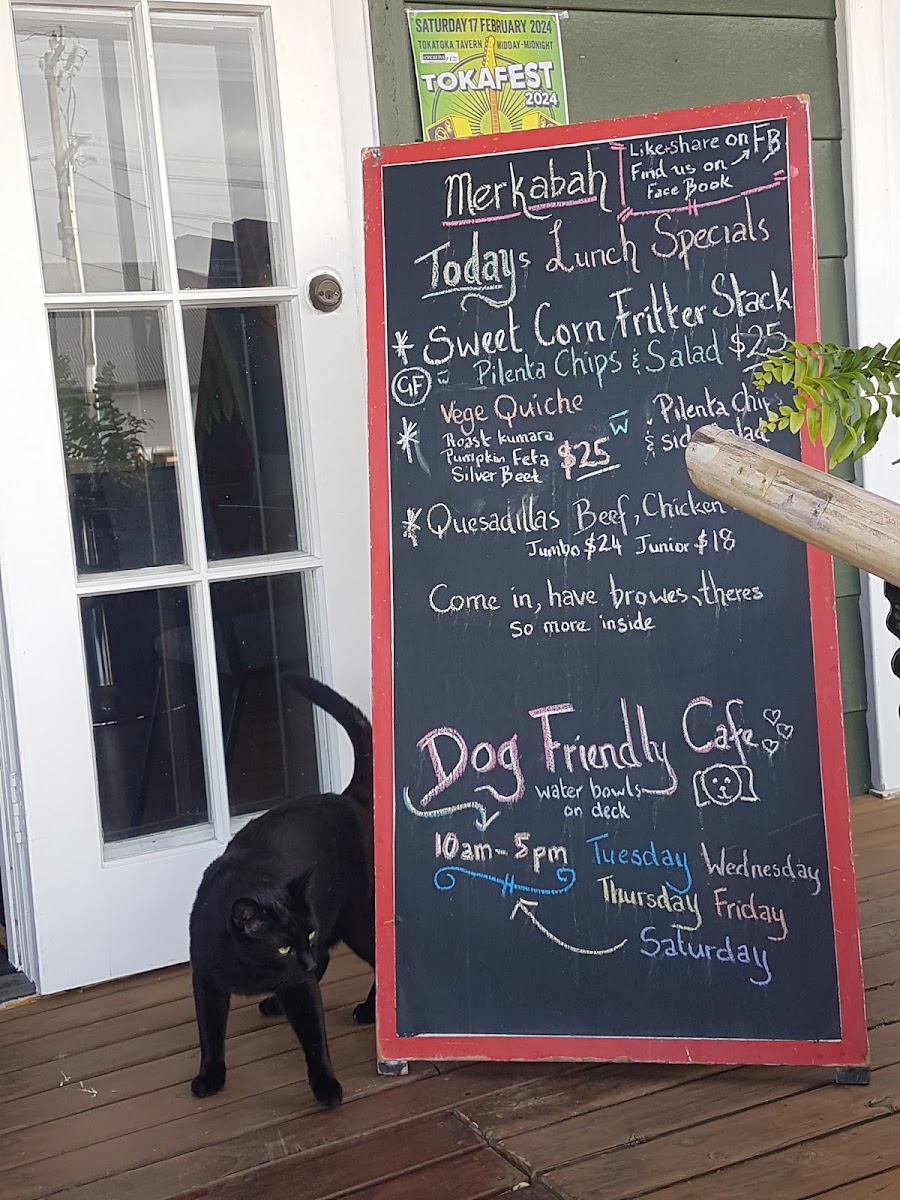 SATURDAY 17 FEBRUARY 2024
TOKATOKA TAVERN MIDDAY-MIDNIGHT
TOKAFEST
2024
Merkabah
Like+share on FB
Find us on
Face Book
Todays Lunch Specials
Sweet Corn Fritter Stack
GF W Pilenta Chips & Salad $25
Vege Quiche
Roast kumara
Pumpkin Feta
Silver Beet
$25
W
Pilenta Chips
& side Salad
Quesadillas Beef, Chicken
Jumbo $24 Junior $18
Come in, have browes, theres
so more inside
Dog Friendly Cafe
water bowls
on deck
10am-5pm
Tuesday Wednesday
Thursday Friday
Saturday